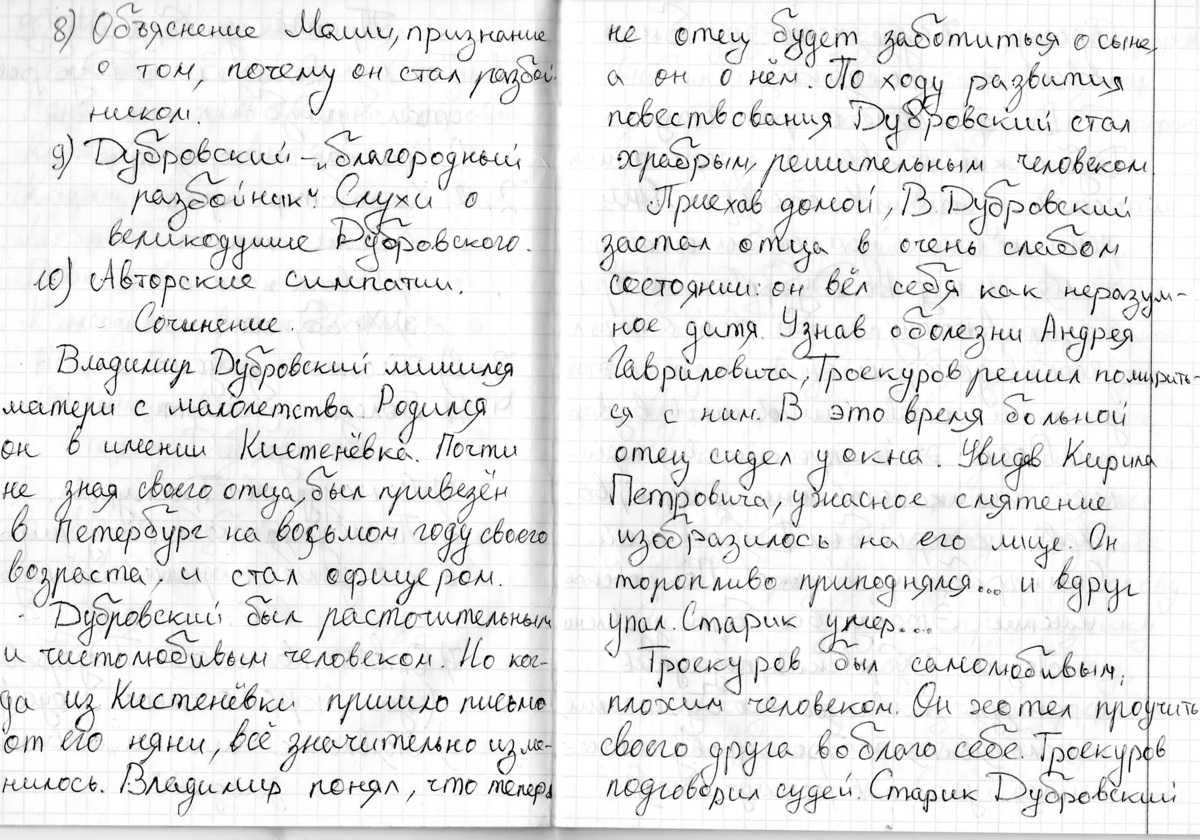 8) Объяснение Маши, признание
о том, почему он стал разбой-
ником.
9) Дубровский - „благородный
разбойник". Слухи о
великодушие Дубровского.
10) Авторские симпатии.
Сочинение.
Владимир Дубровский лишился
матери с малолетства. Родился
он в имении Кистенёвка. Почти
не зная своего отца, был привезён
в Петербург на восьмом году своего
возраста, и стал офицером.
Дубровский был расточительным
и чистолюбивым человеком. Но ког-
да из Кистенёвки пришло письмо
от его няни, всё значительно изме-
нилось. Владимир понял, что теперь
не отец будет заботиться о сыне,
а он о нём. По ходу развития
повествования Дубровский стал
храбрым, решительным человеком.
Приехав домой, В Дубровский
застал отца в очень слабом
состоянии: он вёл себя как неразум-
ное дитя. Узнав о болезни Андрея
Гавриловича, Троекуров решил помирить-
ся с ним. В это время больной
отец сидел у окна. Увидев Кирила
Петровича, ужасное смятение
изобразилось на его лице. Он
торопливо приподнялся... и вдруг
упал. Старик умер...
Троекуров был самолюбивым,
плохим человеком. Он хотел проучить
своего друга во благо себе. Троекуров
подговорил судей. Старик Дубровский